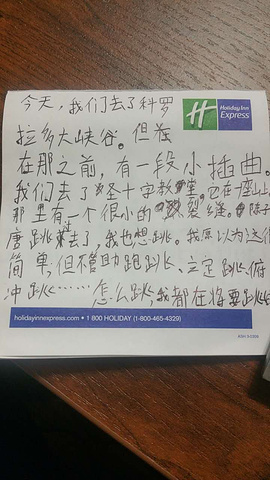 今天，我们去了科罗
Holiday Inn
Express
拉多大峡谷。但
在那之前，有一段小插曲。
我们去了圣十字教堂。它在崖上
那里有一个很小的裂缝。陈子
唐跳过去了，我也想跳。我原以为这很
简单，但不管助跑跳、立定跳、俯
冲跳……怎么跳，我都在将要跳
holidayinnexpress.com • 1 800 HOLIDAY (1-800-465-4329)